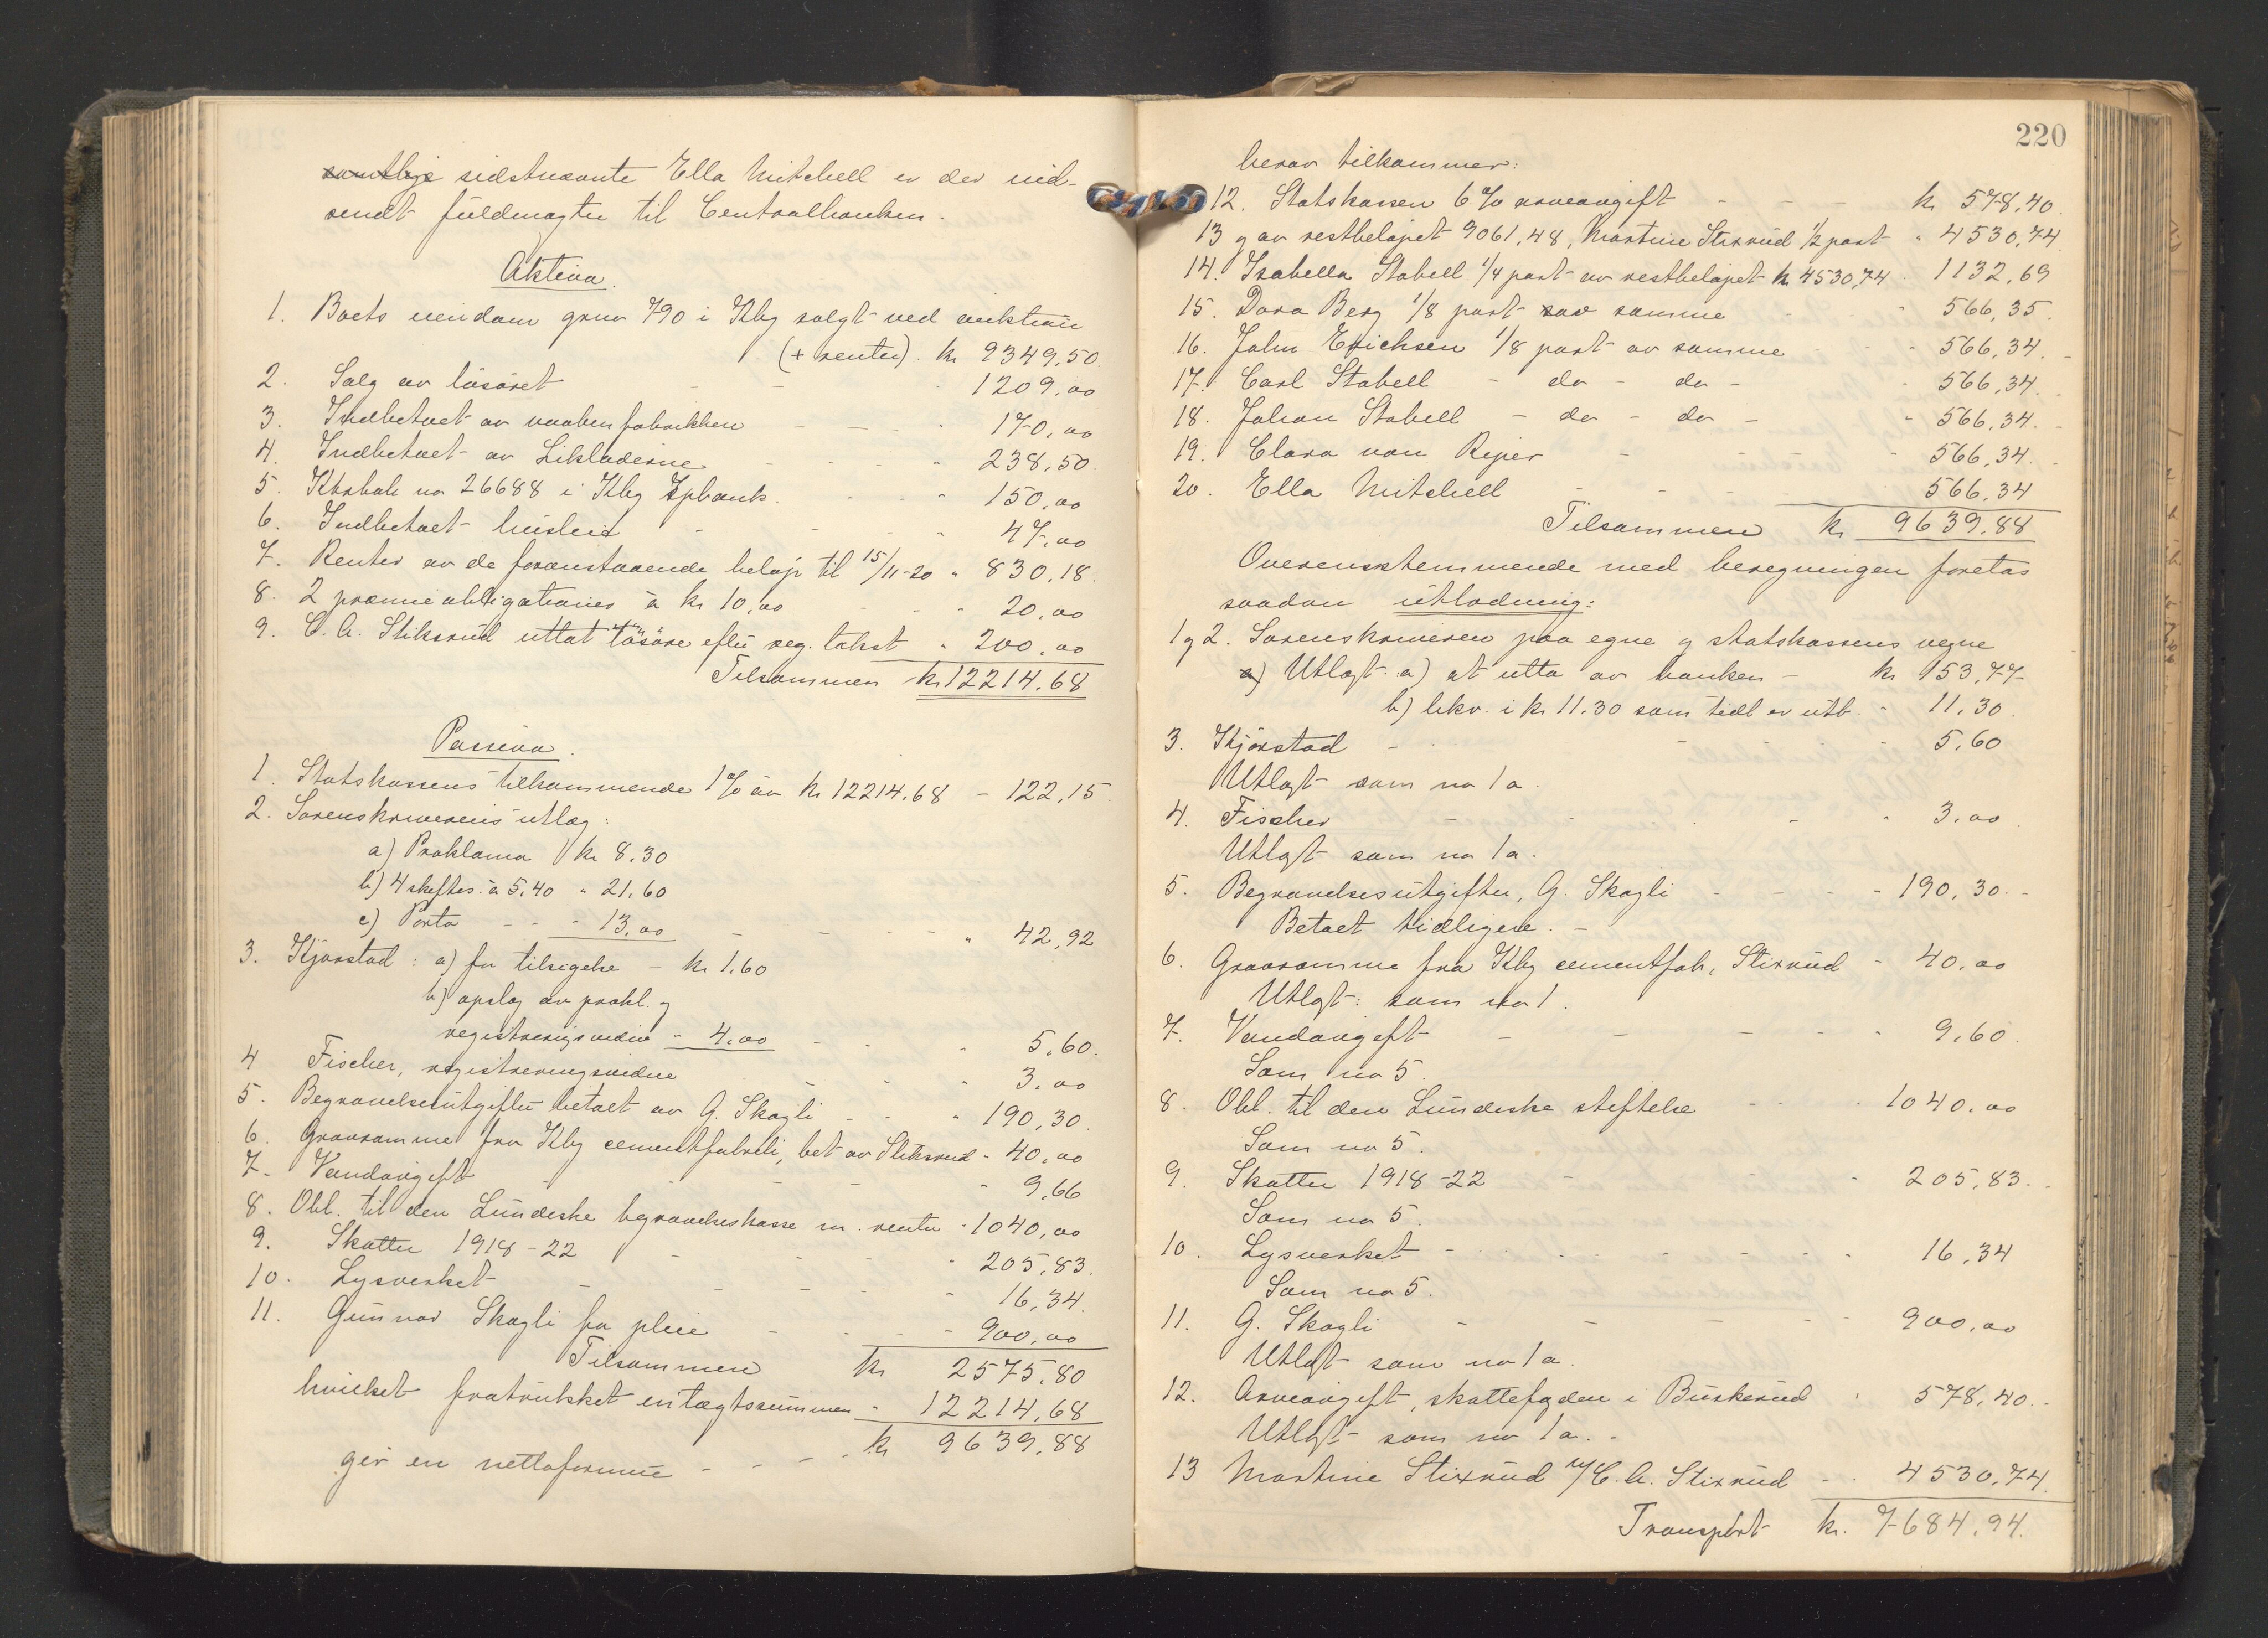 samtlige sidstnævnte Ella Mitchell er der ind-
sendt fuldmagter til Centralbanken.
Aktiva.
1. Boets eiendom grno 790 i Kbg solgt ved auktion
(+ renter). kr 9349,50
2. Salg av løsøret - - 1209,00
3. Indbetaet av vaabenfabrikken - - - 170,00
4. Indbetaet av Likladerne - - - " 238,50.
5. Kbrbok no 26688 i Kbg Spbank. - - " 150,00
6. Indbetaet husleie - - - " 47,00
7. Renter av de foranstaaende beløp til 15/11-20 " 830,18.
8. 2 præmieobligationer à kr 10,00 - - " 20,00
9. C. A. Stiksrud uttat løsøre efter reg. takst " 200,00
Tilsammen kr 12214,68
Passiva.
1. Statskassens tilkommende 1% av kr 12214,68 - 122,15.
2. Sorenskriverens utlæg:
a) Proklama kr 8.30
b) 4 skiftes. à 5,40 " 21,60
c) Porto - - - 13,00 - - - - " 42,92
3. Kjørstad: a) for tilsigelse - kr 1.60
b) opslag av prokl. og
registreringsvidne - 4,00 - - " 5,60.
4 Fischer, registreringsvidne - - " 3,00
5. Begravelsesutgifter betaet av G. Skogli - - " 190,30.
6. Gravramme fra Kbg cementfabrik, bet av Stiksrud - 40,00
7. Vandavgift - - - - " 9,66
8. Obl. til den Lundeske begravelseskasse m. renter - 1040,00
9. Skatter 1918-22 - - - " 205,83.
10. Lysverket - - - - - 16,34.
11. Gunnar Skogli for pleie - - - - 900,00
Tilsammen kr 2575,80
hvilket fratrukket indtægtssummen - 12214,68
gir en nettoformue - - - - kr 9639,88
220
herav tilkommer:
12. Statskassen 6% arveavgift - - - kr 578,40.
13 og av restbeløpet 9061,48, Martine Stixrud 1/2 part " 4530,74.
14. Isabella Stabell 1/4 part av restbeløpet kr 4530,74 - 1132,69
15. Dora Berg 1/8 part av samme - - 566,35.
16. John Erichsen 1/8 part av samme - - 566,34.
17. Carl Stabell - do - do - - 566,34.
18. Johan Stabell - do - do - " 566,34.
19. Clara van Riper - - - 566,34.
20. Ella Mitchell - - - 566,34
Tilsammen kr 9639,88
Overensstemmende med beregningen foretas
saadan utlodning:
1 og 2. Sorenskriveren paa egne og statskassens vegne
Utlagt: a) at utta av banken - kr 153,77
b) bekv. i kr 11.30 som tidl er utb. - 11,30.
3. Kjørstad - - - 5,60
Utlagt som no 1 a.
4. Fischer - - - - " 3,00.
Utlagt som no 1 a.
5. Begravelsesutgifter, G. Skogli - - - - 190,30.-
Betaet tidligere. -
6. Gravramme fra Kbg cementfab, Stixrud - 40,00
Utlagt: som no 1.
7. Vandavgift - - - - 9,60.
Som no 5.
8. Obl. til den Lundeske stiftelse - - - 1040,00
Som no 5.
9. Skatter 1918-22 - - 205,83.-
Som no 5.
10. Lysverket - - - - - 16,34
Som no 5.
11. G. Skogli - - - - 900,00
Utlagt som no 1 a.
12. Arveavgift, skattefogden i Buskerud " 578,40.-
Utlagt som no 1 a. -
13 Martine Stixrud v/ C. A. Stixrud - - 4530,74.
Transport kr. 7684,94.